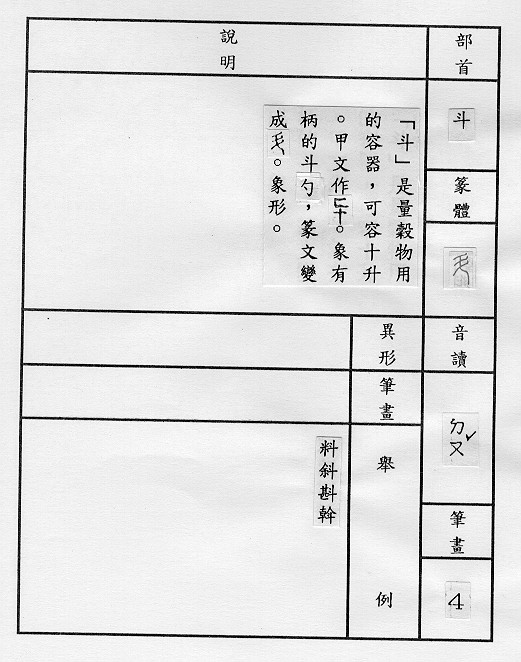 部首
斗
篆體
音讀
ㄉㄡˇ
筆畫
4
說明
「斗」是量穀物用
的容器，可容十升
。甲文作。象有
柄的斗勺，篆文變
成。象形。
異形
筆畫
舉例
料斜斟斡